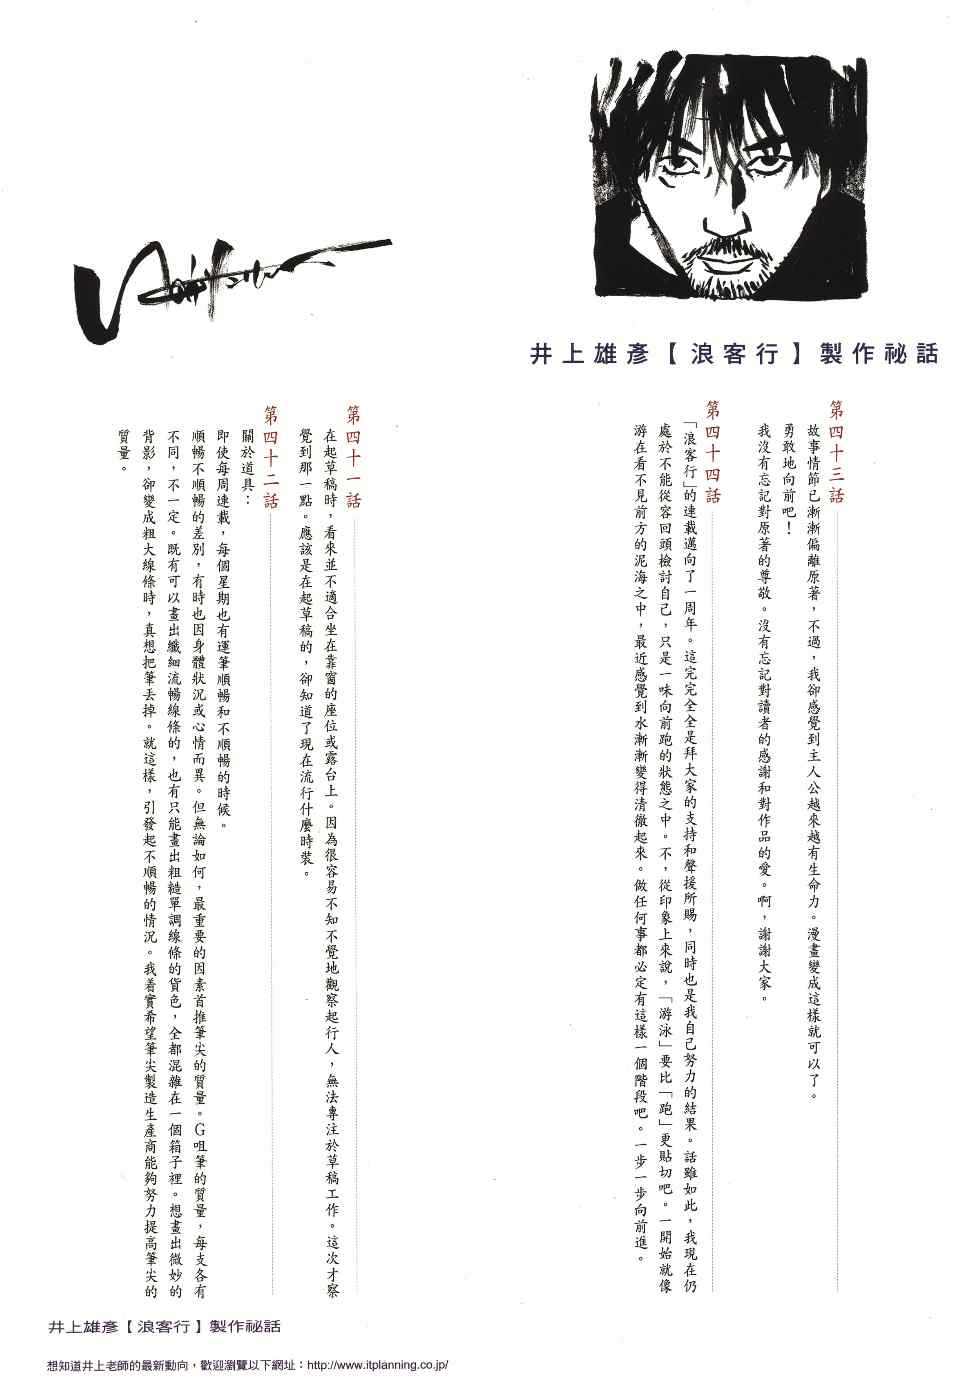 井上雄彥【浪客行】製作祕話
第四十三話
故事情節已漸漸偏離原著，不過，我卻感覺到主人公越來越有生命力。漫畫變成這樣就可以了。
勇敢地向前吧！
我沒有忘記對原著的尊敬。沒有忘記對讀者的感謝和對作品的愛。啊，謝謝大家。
第四十四話
「浪客行」的連載邁向了一周年。這完完全全是拜大家的支持和聲援所賜，同時也是我自己努力的結果。話雖如此，我現在仍
處於不能從容回頭檢討自己，只是一味向前跑的狀態之中。不，從印象上來說，「游泳」要比「跑」更貼切吧。一開始就像
游在看不見前方的泥海之中，最近感覺到水漸漸變得清徹起來。做任何事都必定有這樣一個階段吧。一步一步向前進。
第四十一話
在起草稿時，看來並不適合坐在靠窗的座位或露台上。因為很容易不知不覺地觀察起行人，無法專注於草稿工作。這次才察
覺到那一點。應該是在起草稿的，卻知道了現在流行什麼時裝。
第四十二話
關於道具：
即使每周連載，每個星期也有運筆順暢和不順暢的時候。
順暢不順暢的差別，有時也因身體狀況或心情而異。但無論如何，最重要的因素首推筆尖的質量。G咀筆的質量，每支各有
不同，不一定。既有可以畫出纖細流暢線條的，也有只能畫出粗糙單調線條的貨色，全都混雜在一個箱子裡。想畫出微妙的
背影，卻變成粗大線條時，真想把筆丟掉。就這樣，引發起不順暢的情況。我着實希望筆尖製造生產商能夠努力提高筆尖的
質量。
井上雄彥【浪客行】製作祕話
想知道井上老師的最新動向，歡迎瀏覽以下網址：http://www.itplanning.co.jp/